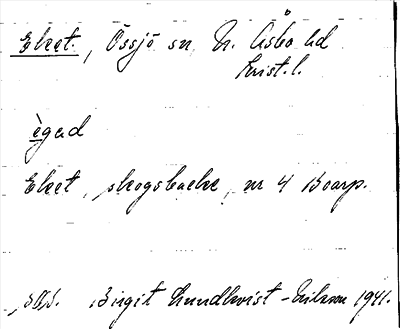 Eket, Össjö sn N. Åsbo hd
Krist. l.
ègəd
Eket, skogsbacke, nr 4 Boarp.
Birgit Lundkvist-Nilsson 1941.